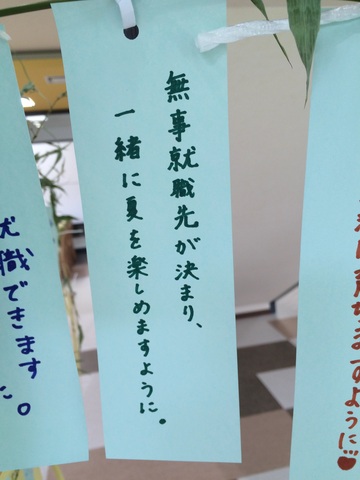 無事就職先が決まり、
一緒に夏を楽しめますように。
就職できます
に。
ますように…